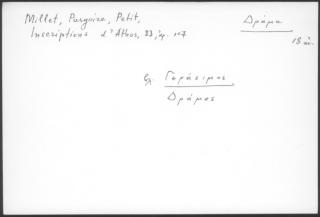 Millet, Pargoire, Petit,
Inscriptions d'Athos, 33, ἀρ. 107
Δράμα
18 αἰ.
Γεράσιμος
Δράμας